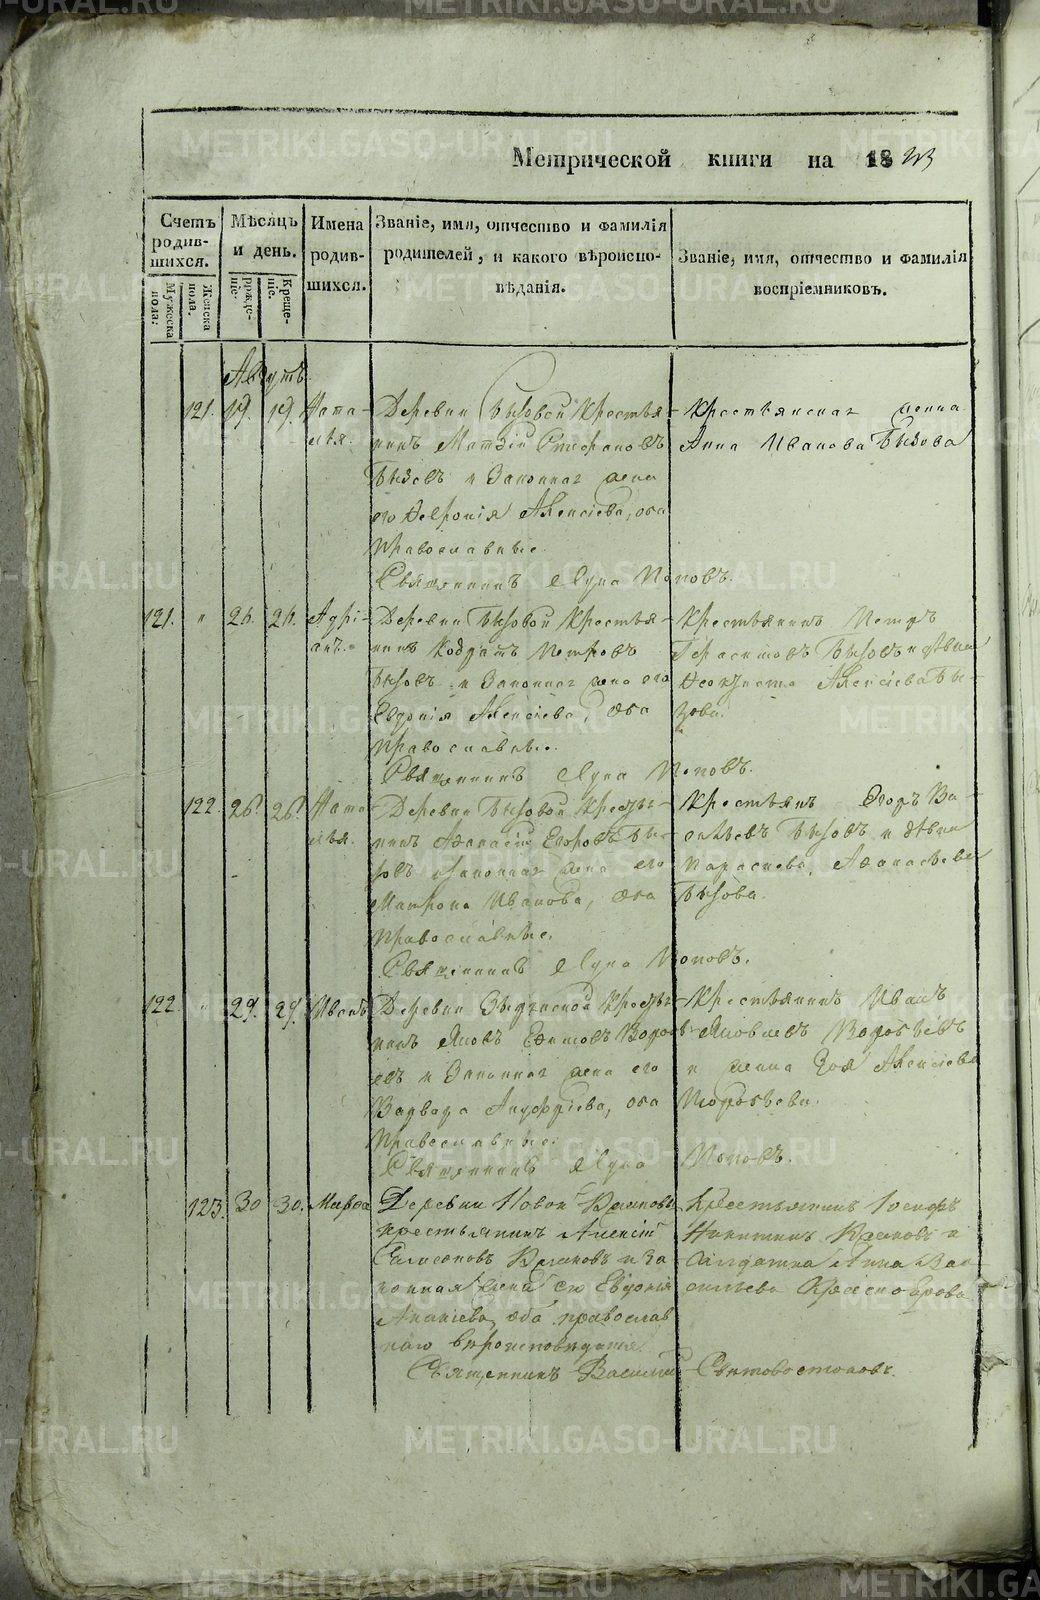 METRIKI.GASO-URAL.RU
Метрической книги на 1843
Счетъ родив-
шихся.
Мужеска пола.
Женска пола.
Мѣсяцъ и день.
рожде-
ніе.
Креще-
ніе.
Имена родив-
шихся.
Званіе, имя, отчество и фамилія
родителей, и какого вѣроиспо-
вѣданія.
Званіе, имя, отчество и фамилія
воспріемниковъ.
Августъ.
121. 19. 19. Ната-
лья.
Деревни Бызовой Крестья-
нинъ Матвій Стефановъ
Бызовъ и Законная жена
его Алексіева, оба
православные.
Священникъ Лука Поповъ.
Крестьянская жена
Анна Иванова Бызова
121. " 26. 26. Адрі-
анъ.
Деревни Бызовой Крестья-
нинъ Кодратъ Петровъ
Бызовъ и Законная жена его
Евдокія Алексіева, оба
православные.
Священникъ Лука Поповъ.
Крестьянинъ Петръ
Герасимовъ Бызовъ и дѣвка
Ѳеоктиста Алексіева Бы-
зова.
122. 26. 26. Ната-
лья.
Деревни Бызовой Крестья-
нинъ Аѳанасій Егоровъ Бы-
зовъ и законная жена его
Матрона Иванова, оба
православные.
Священникъ Лука Поповъ.
Крестьянъ Егоръ Ва-
сильевъ Бызовъ и дѣвка
Параскева Аѳанасьева
Бызова.
122. " 29. 29. Иванъ
Деревни Крестья-
нинъ Яковъ Ефимовъ Воробь-
евъ и Законная жена его
Варвара оба
православные.
Священникъ Лука Поповъ.
Крестьянинъ Иванъ
Яковлевъ Воробьевъ
и жена Зоя Алексіева
123. 30 30. Марѳа
Деревни Новой
крестьянинъ Алексій
и за-
конная жена его Евдокія
Ананіева, оба православ
наго вѣроисповѣданія
Священникъ Василій Свѣтовостоковъ.
Крестьянинъ Іосифъ
Никитинъ и
Салдатка Анна Ва-
сильева